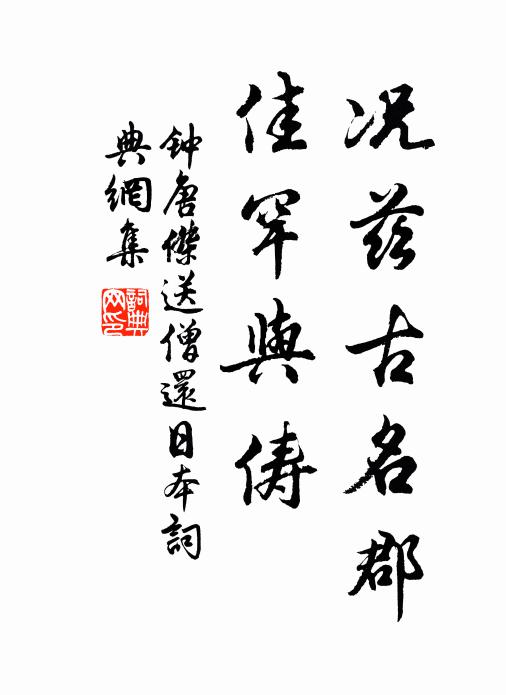 况茲古名郡
佳罕與儔
钟唐傑送僧還日本詞
典網集
詞典網印